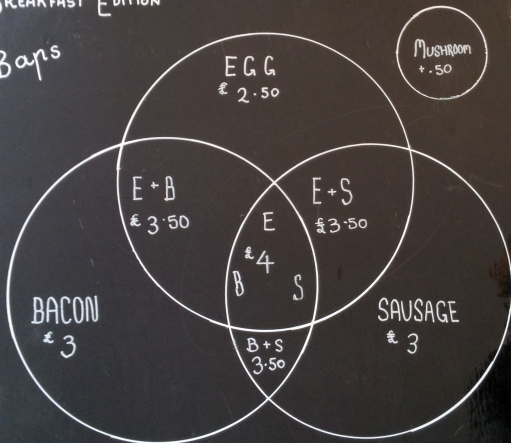 BREAKFAST EDITION
Baps
MUSHROOM
+.50
EGG
£ 2.50
E + B
£ 3.50
E + S
£3.50
E
£4
B S
BACON
£ 3
SAUSAGE
£ 3
B + S
3.50